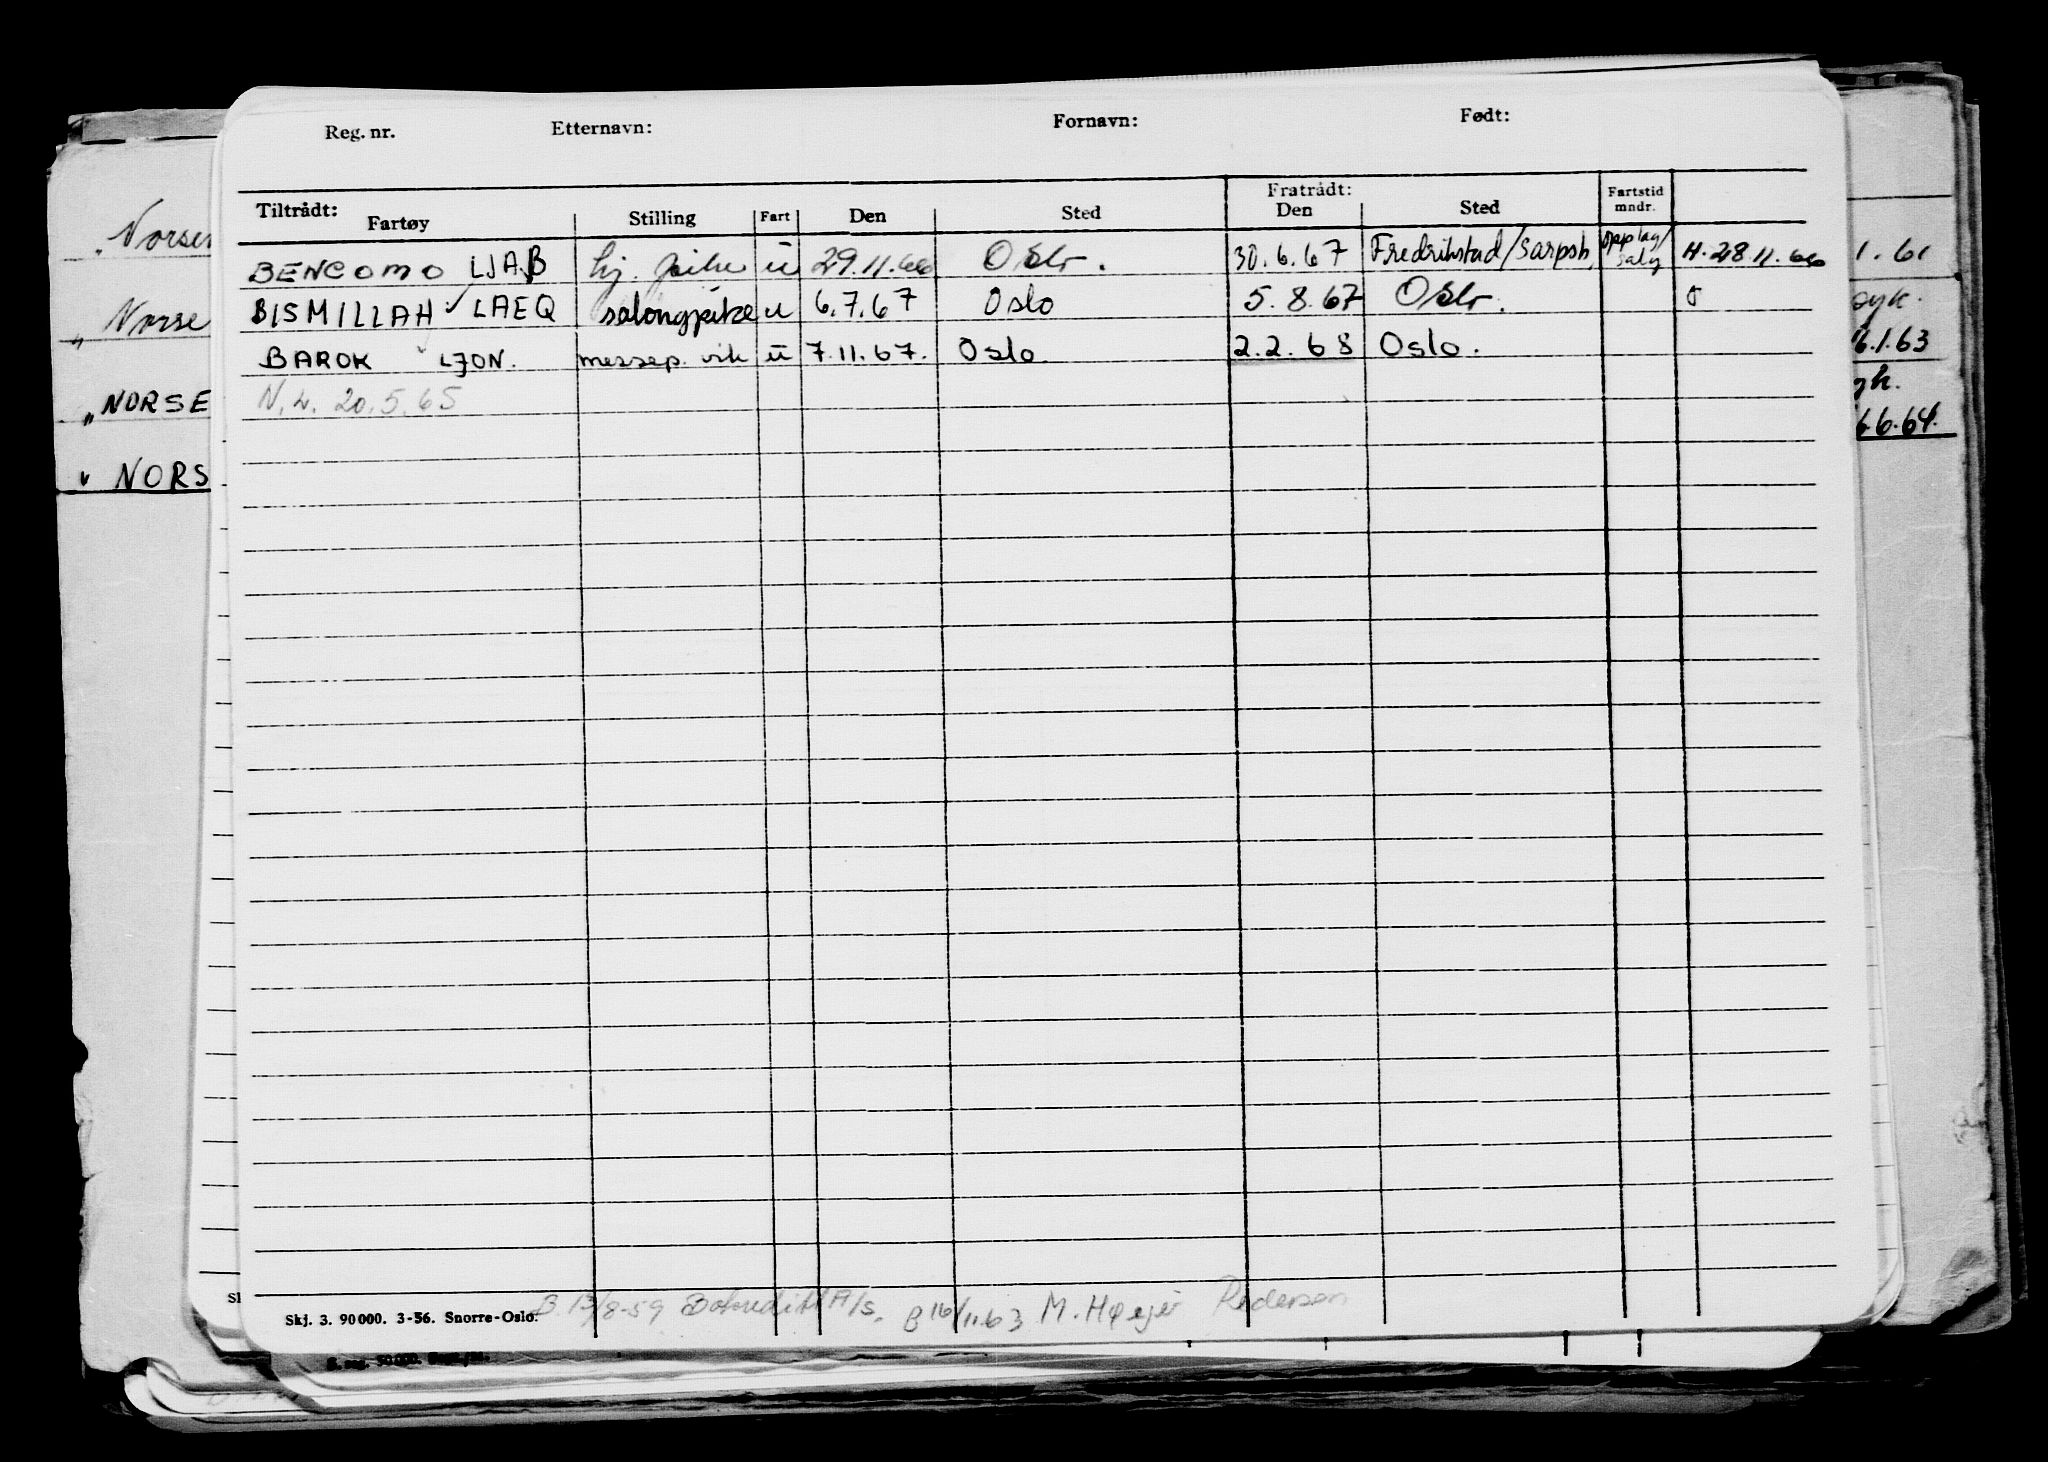 Reg. nr. Etternavn: Fornavn: Født:
Tiltrådt: Fartøy Stilling Fart Den Sted Fratrådt: Den Sted Fartstid mndr.
BENCOMO LJAB hj. pike u 29.11.66 Oslo. 30.6.67 Fredrikstad/Sarpsb. opplag/salg H. 28.11.66
BISMILLAH LAEQ salongpike u 6.7.67 Oslo 5.8.67 Oslo.
BAROK LJON. messep. vik u 7.11.67. Oslo 2.2.68 Oslo.
N.L. 20.5.65
B. 13/8-59 A/S. B 16/11.63 M. Høyer Pedersen
Skj. 3. 90 000. 3-56. Snorre-Oslo.
„Norse
„Norse
„NORSE
" NORS
1.61
syk.
6.1.63
yk.
6.6.64.